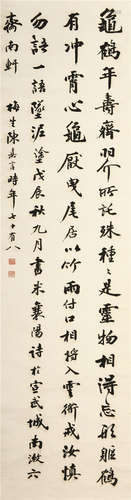 龜鶴年壽齊羽介所託殊種種是靈物相得忘形軀鶴
有冲霄心龜厭曳尾居以竹兩付口相將入雲衢戒汝慎
勿語一語墜泥塗戊辰秋九月書米襄陽詩於宣武城南漱六
齋南軒 梅生陳嘉言時年七十有八